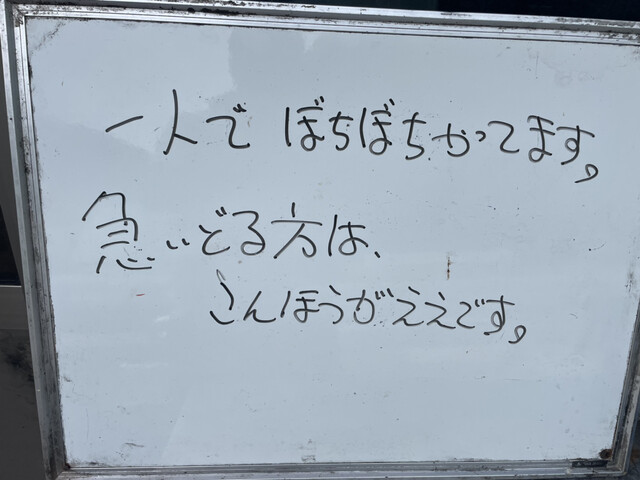 一人で ぼちぼちやってます。
急いどる方は、
こんほうがええです。